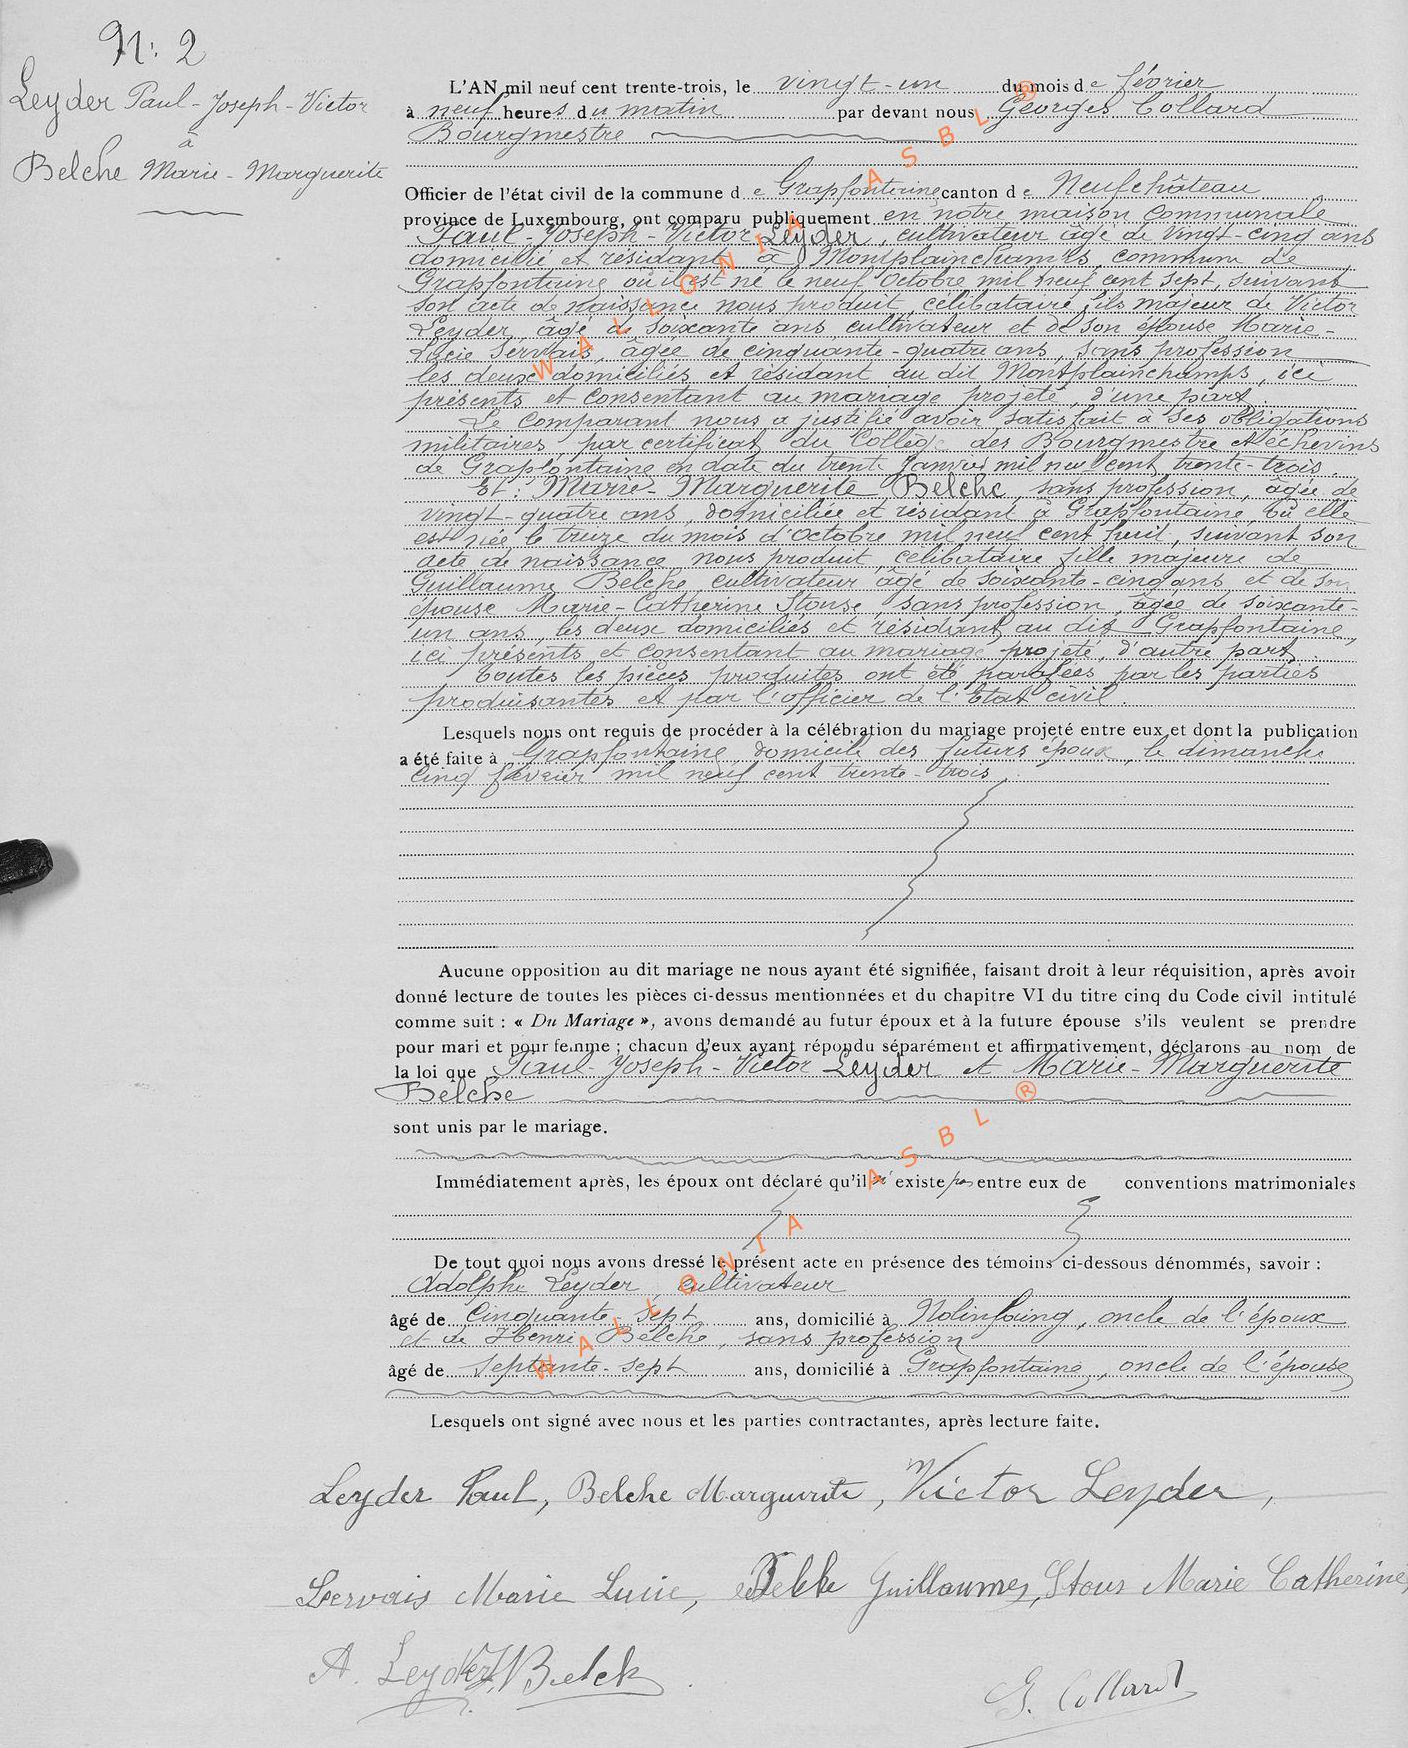 N: 2
Leyder Paul-Joseph-Victor
à
Belche Marie-Marguerite
L'AN mil neuf cent trente-trois, le vingt-un du mois de février
à neuf heures du matin par devant nous Georges Collard
Bourgmestre
Officier de l'état civil de la commune de Grapfontaine canton de Neufchâteau
province de Luxembourg, ont comparu publiquement en notre maison communale
Paul-Joseph-Victor Leyder, cultivateur âgé de vingt-cinq ans
domicilié et résidant à Montplainchamps, commune de
Grapfontaine où il est né le neuf Octobre mil neuf cent sept, suivant
son acte de naissance nous produit, célibataire, fils majeur de Victor
Leyder, âgé de soixante ans, cultivateur et de son épouse Marie-
Lucie Servais, âgée de cinquante-quatre ans, sans profession
les deux domiciliés et résidant au dit Montplainchamps, ici
présents et consentant au mariage projeté, d'une part.
Le comparant nous a justifié avoir satisfait à ses obligations
militaires par certificat du Collège des Bourgmestre et échevins
de Grapfontaine en date du trente Janvier mil neuf cent trente-trois.
Et: Marie-Marguerite Belche, sans profession, âgée de
vingt-quatre ans, domiciliée et résidant à Grapfontaine, où elle
est née le treize du mois d'Octobre mil neuf cent huit, suivant son
acte de naissance nous produit, célibataire fille majeure de
Guillaume Belche, cultivateur âgé de soixante-cinq ans et de son
épouse Marie-Catherine Stouse, sans profession, âgée de soixante-
un ans, les deux domiciliés et résidant au dit Grapfontaine,
ici présents et consentant au mariage projeté, d'autre part.
Toutes les pièces produites ont été parafées par les parties
produisantes et par l'officier de l'Etat civil.
Lesquels nous ont requis de procéder à la célébration du mariage projeté entre eux et dont la publication
a été faite à Grapfontaine, domicile des futurs époux, le dimanche
cinq février mil neuf cent trente-trois.
Aucune opposition au dit mariage ne nous ayant été signifiée, faisant droit à leur réquisition, après avoir
donné lecture de toutes les pièces ci-dessus mentionnées et du chapitre VI du titre cinq du Code civil intitulé
comme suit : « Du Mariage », avons demandé au futur époux et à la future épouse s'ils veulent se prendre
pour mari et pour femme ; chacun d'eux ayant répondu séparément et affirmativement, déclarons au nom de
la loi que Paul-Joseph-Victor Leyder et Marie-Marguerite
Belche
sont unis par le mariage.
Immédiatement après, les époux ont déclaré qu'il n'existe pas entre eux de conventions matrimoniales
De tout quoi nous avons dressé le présent acte en présence des témoins ci-dessous dénommés, savoir :
Adolphe Leyder, cultivateur
âgé de cinquante-sept ans, domicilié à Nolinfaing, oncle de l'époux
et de Henri Belche, sans profession
âgé de septante-sept ans, domicilié à Grapfontaine, oncle de l'épouse
Lesquels ont signé avec nous et les parties contractantes, après lecture faite.
Leyder Paul, Belche Marguerite, Victor Leyder,
Servais Marie Lucie, Guillaume, Stous Marie Catherine,
A. Leyder, Belche
G. Collard
WALLONIA ASBL ®
WALLONIA ASBL ®